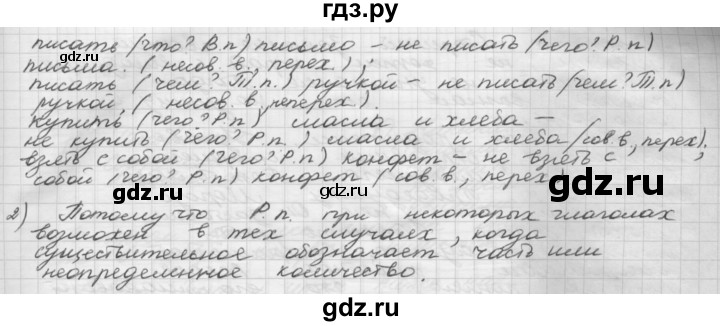 гдз.ру
писать (что? В.п) письмо – не писать (чего? Р.п)
письма. (несов. в, перех);
писать (чем? Т.п.) ручкой – не писать (чем? Т.п)
ручкой, (несов. в, неперех).
купить (чего? Р.п) масла и хлеба –
не купить (чего? Р.п) масла и хлеба (сов. в, перех).
взять с собой (чего? Р.п) конфет – не взять с
собой (чего? Р.п) конфет (сов. в., перех)
2) Потому что Р.п. при некоторых глаголах
возможен в тех случаях, когда
существительное обозначает часть или
неопределенное количество.
gdz.ru
gdz.ru
gdz.ru
gdz.ru
gdz.ru
gdz.ru
gdz.ru
gdz.ru